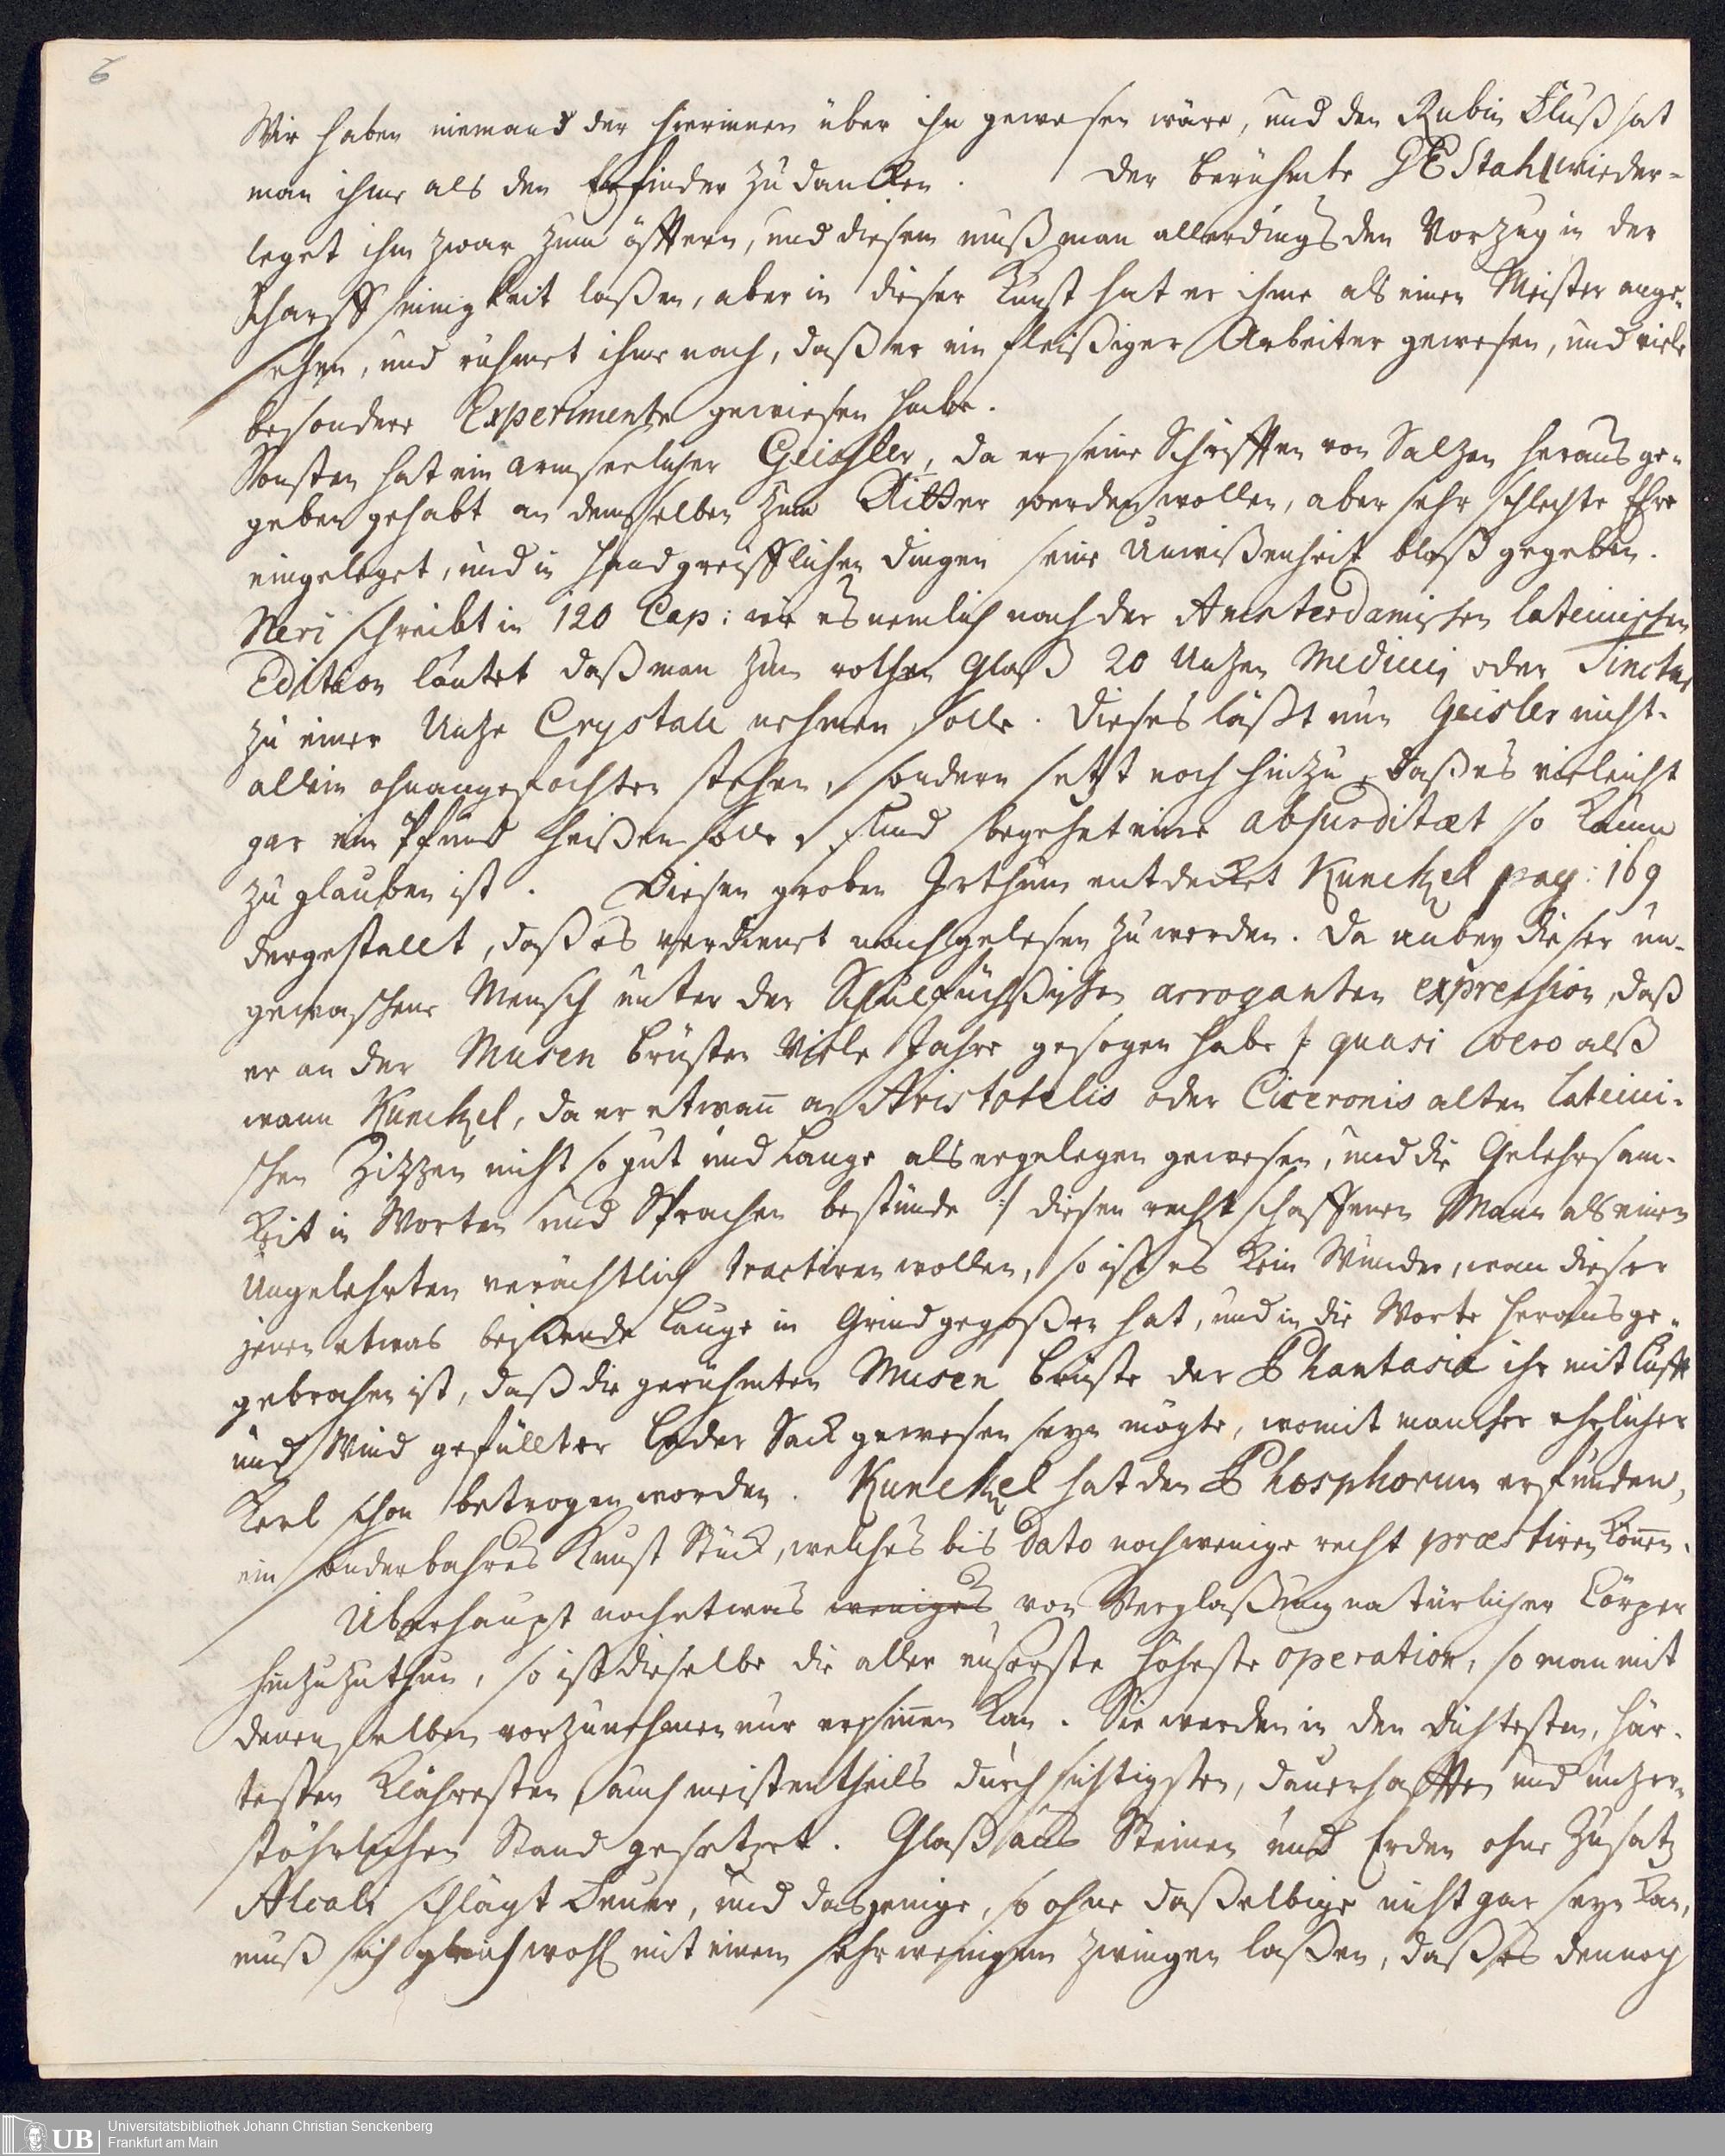 6
Wir haben niemand der hierinnen über ihn gewesen wäre, und den Rubin Fluß hat
man ihme als den Erfinder zu dancken. Der berühmte GE Stahl wieder-
leget ihn zwar zum öfftern, und diesem muß man allerdings den Vorzug in der
Scharffsinnigkeit laßen, aber in dieser Kunst hat er ihme als einen Meister ange-
sehen, und rühmet ihme nach, daß er ein fleißiger Arbeiter gewesen, und viele
besondere Experimente gewiesen habe.
Sonsten hat ein armseelicher Geissler, da er seine Schrifften von Salzen heraus ge-
geben gehabt an demselben zum Ritter werden wollen, aber sehr schlechte Ehre
eingeleget, und in handgreifflichen dingen seine Unwißenheit bloß gegeben.
Neri schreibt in 120 Cap: wie es nemlich nach der Amsterdamischen lateinischen
Edition lautet daß man zum rothen Glaß 20 Untzen Medicin oder Tinctur
zu einer Untze Crystall nehmen solle. Dieses läßt nun Geisler nicht-
allein ohnangefochten stehen, sondern setzt noch hinzu, daß es vieleicht
gar ein Pfund heißen solle, und begehet eine absurditæt so kaum
zu glauben ist. Diesen groben Irthum entdecket Kunckel pag: 169
dergestallt, daß es verdienet nachgelesen zu werden. Da anbey dieser un-
gewaschene Mensch unter der Schulfüchßischen arroganten expression, daß
er an der Musen brüsten Viele Jahre gesogen habe /: quasi vero alß
wann Kunckel, da er etwann an Aristotelis oder Ciceronis alten lateini-
schen Zizzen nicht so gut und lange als er gelegen gewesen, und die Gelehrsam-
keit in Worten und Sprachen bestünde :/ diesen rechtschaffenen Mann als einen
Ungelehrten verächtlich tractiren wollen, so ist es kein Wunder, wan dieser
jenen etwas beißende Lauge in Grind gegoßen hat, und in die Worte herausge-
gebrochen ist, daß die gerühmten Musen brüste der Phantasie ihr mit Lufft
und Wind gefüllter leder Sack gewesen seyn mögte, womit mancher ehrlicher
Kerl schon betrogen worden. Kunckel hat den Phosphorum erfunden,
ein sonderbahres Kunst Stück, welches bis dato noch wenige recht præstiren können.
Überhaupt noch etwas weniges von Verglaßung natürlicher Cörper
hinzuzuthun, so ist dieselbe die aller euserste höheste operation, so man mit
denenselben vorzunehmen nur ersinnen kan. Sie werden in den dichtesten, här-
testen klähresten, auch meistentheils durchsichtigsten, dauerhafften und unzer-
stöhrlichen Stand gesetzet. Glaß aus Steinen und Erden ohne Zusatz
Alcali schlägt Feuer, und dasjenige, so ohne daßelbige nicht gar seyn kan,
muß sich gleichwohl mit einem sehr wenigem zwingen laßen, daß es dennoch
UB Universitätsbibliothek Johann Christian Senckenberg
Frankfurt am Main